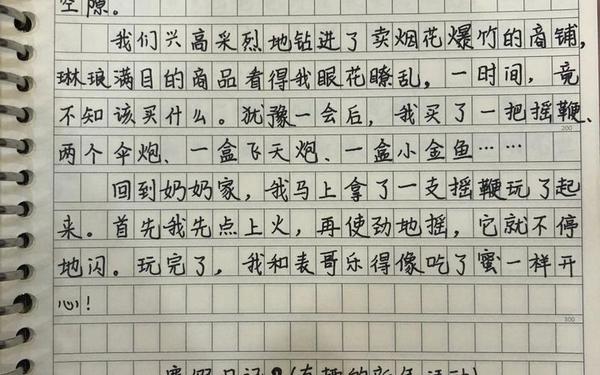 空隙。
我们兴高采烈地钻进了卖烟花爆竹的商铺,
琳琅满目的商品看得我眼花瞭乱,一时间,竟
不知该买什么。犹豫一会后,我买了一把摇鞭、
200
两个伞炮、一盒飞天炮、一盒小金鱼……
回到奶奶家,我马上拿了一支摇鞭玩了起
来。首先我先点上火,再使劲地摇,它就不停
地闪。玩完了,我和表哥乐得像吃了蜜一样开
心!
300